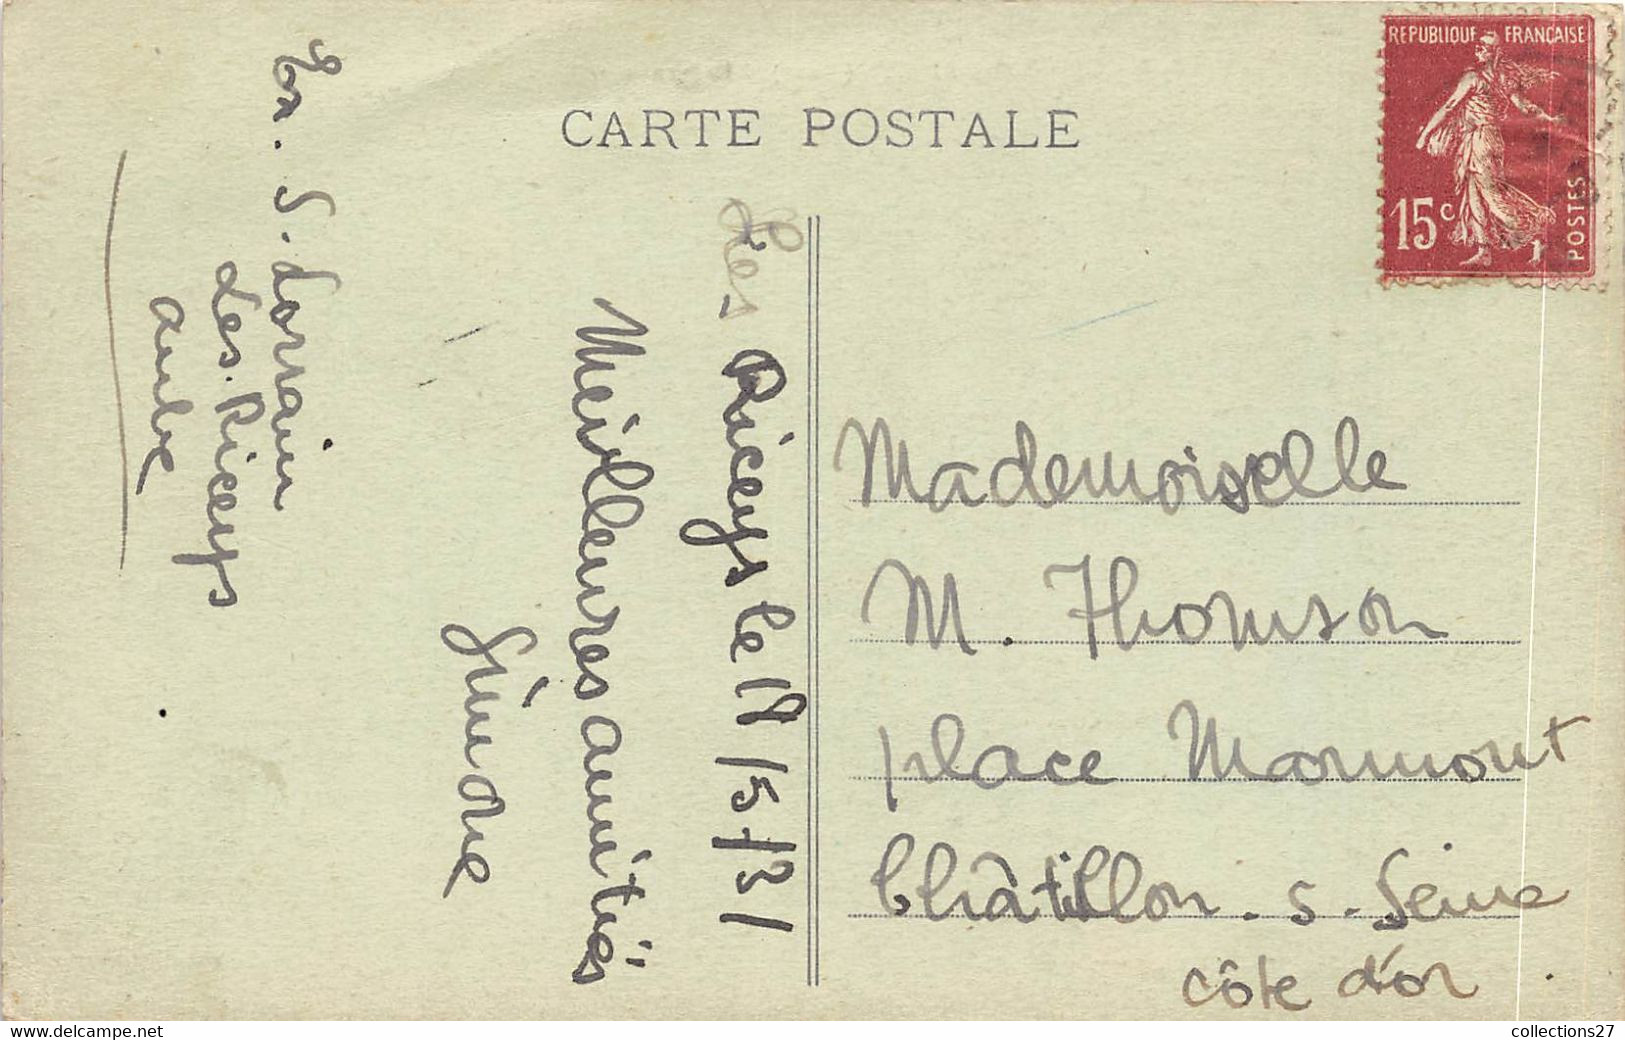 CARTE POSTALE
REPUBLIQUE FRANCAISE
15c
POSTES
Les Riceys le 18/5/31
Meilleures amitiés
Ex. S. Lorrain
Les. Riceys
Aube
Mademoiselle
M. Thomson
place Marmont
Châtillon. s. Seine
côte d'or
www.delcampe.net
collections27